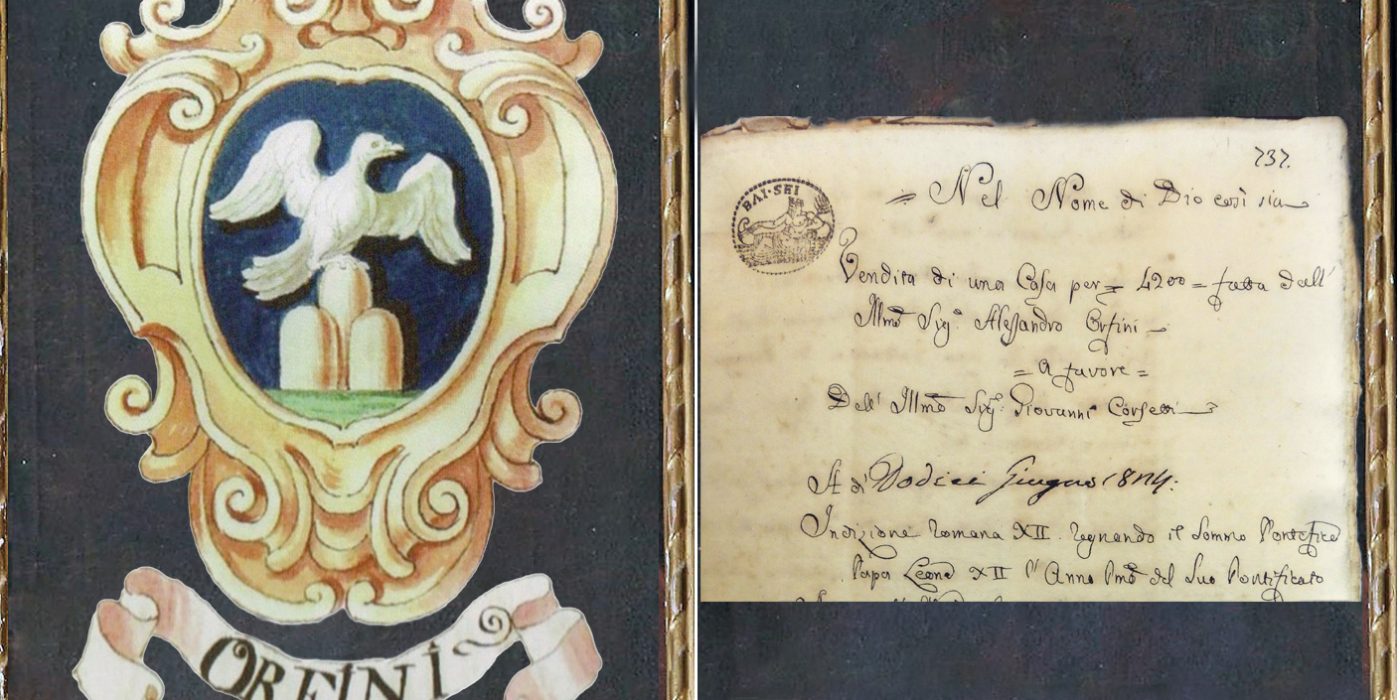 ORFINI
737.
BAI·SEI
Nel Nome di Dio così sia
Vendita di una Casa per = 4200 = fatta dall'
Illmo Sig.r Alessandro Orfini
= a favore =
Dell' Illmo Sig.r Giovanni Corsetti
A dì Dodici Giugno 1824:
Indizione Romana XII. regnando il Sommo Pontefice
Papa Leone XII l'Anno Pmo del Suo Pontificato